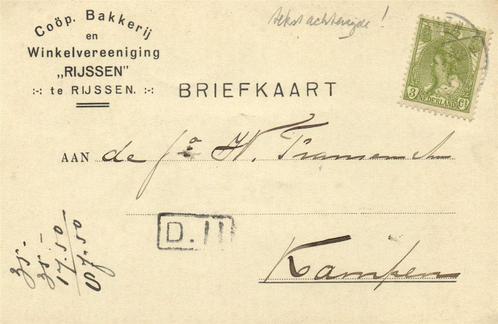 Coöp. Bakkerij
en
Winkelvereeniging
„RIJSSEN”
:-: te RIJSSEN. :-:
tekst achterzijde!
3 NEDERLAND Ct
BRIEFKAART
AAN de Fa W.
D. II
Kampen
35.-
35.-
17.50
87.50